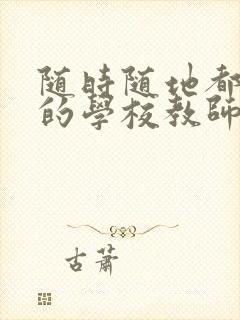 随時随地都
的學校教師
古蕭